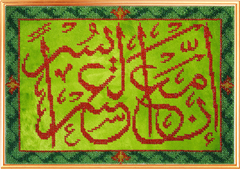 ان مع العسر يسرا